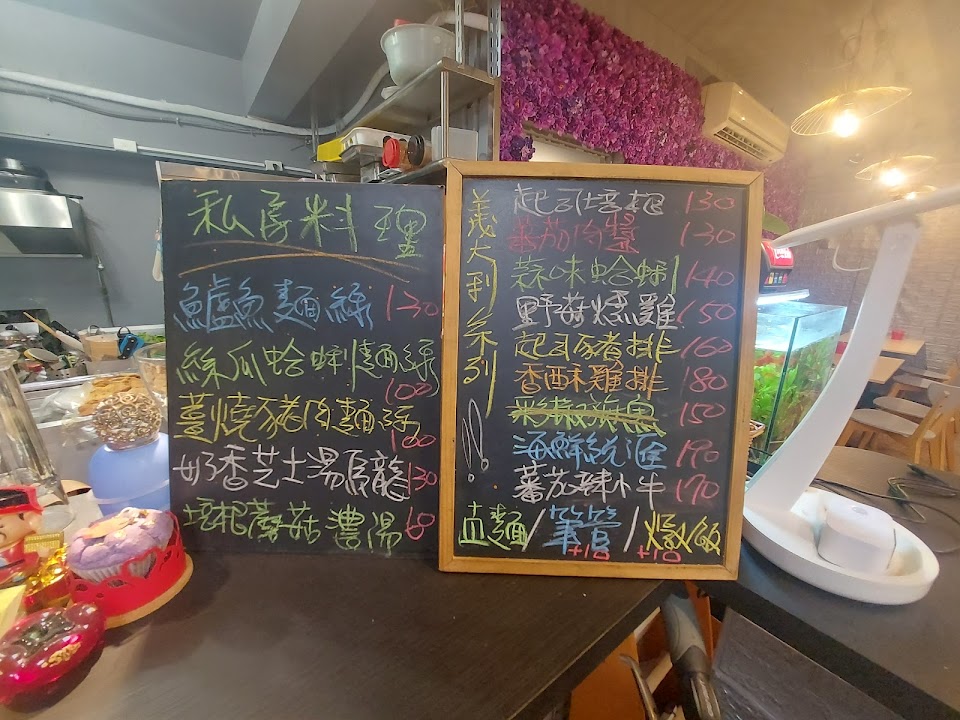 私房料理
鱸魚麵線 130
絲瓜蛤蜊麵線
100
薑燒豬肉麵線
100
奶香芝士湯烏龍 130
培根蘑菇濃湯 60
義大利系列
起司培根 130
蕃茄肉醬 130
蒜味蛤蜊 140
野菇燻雞 150
起司豬排 160
香酥雞排 180
150
海鮮總匯 190
蕃茄辣小牛 170
直麵/筆管/燉飯
+10 +10